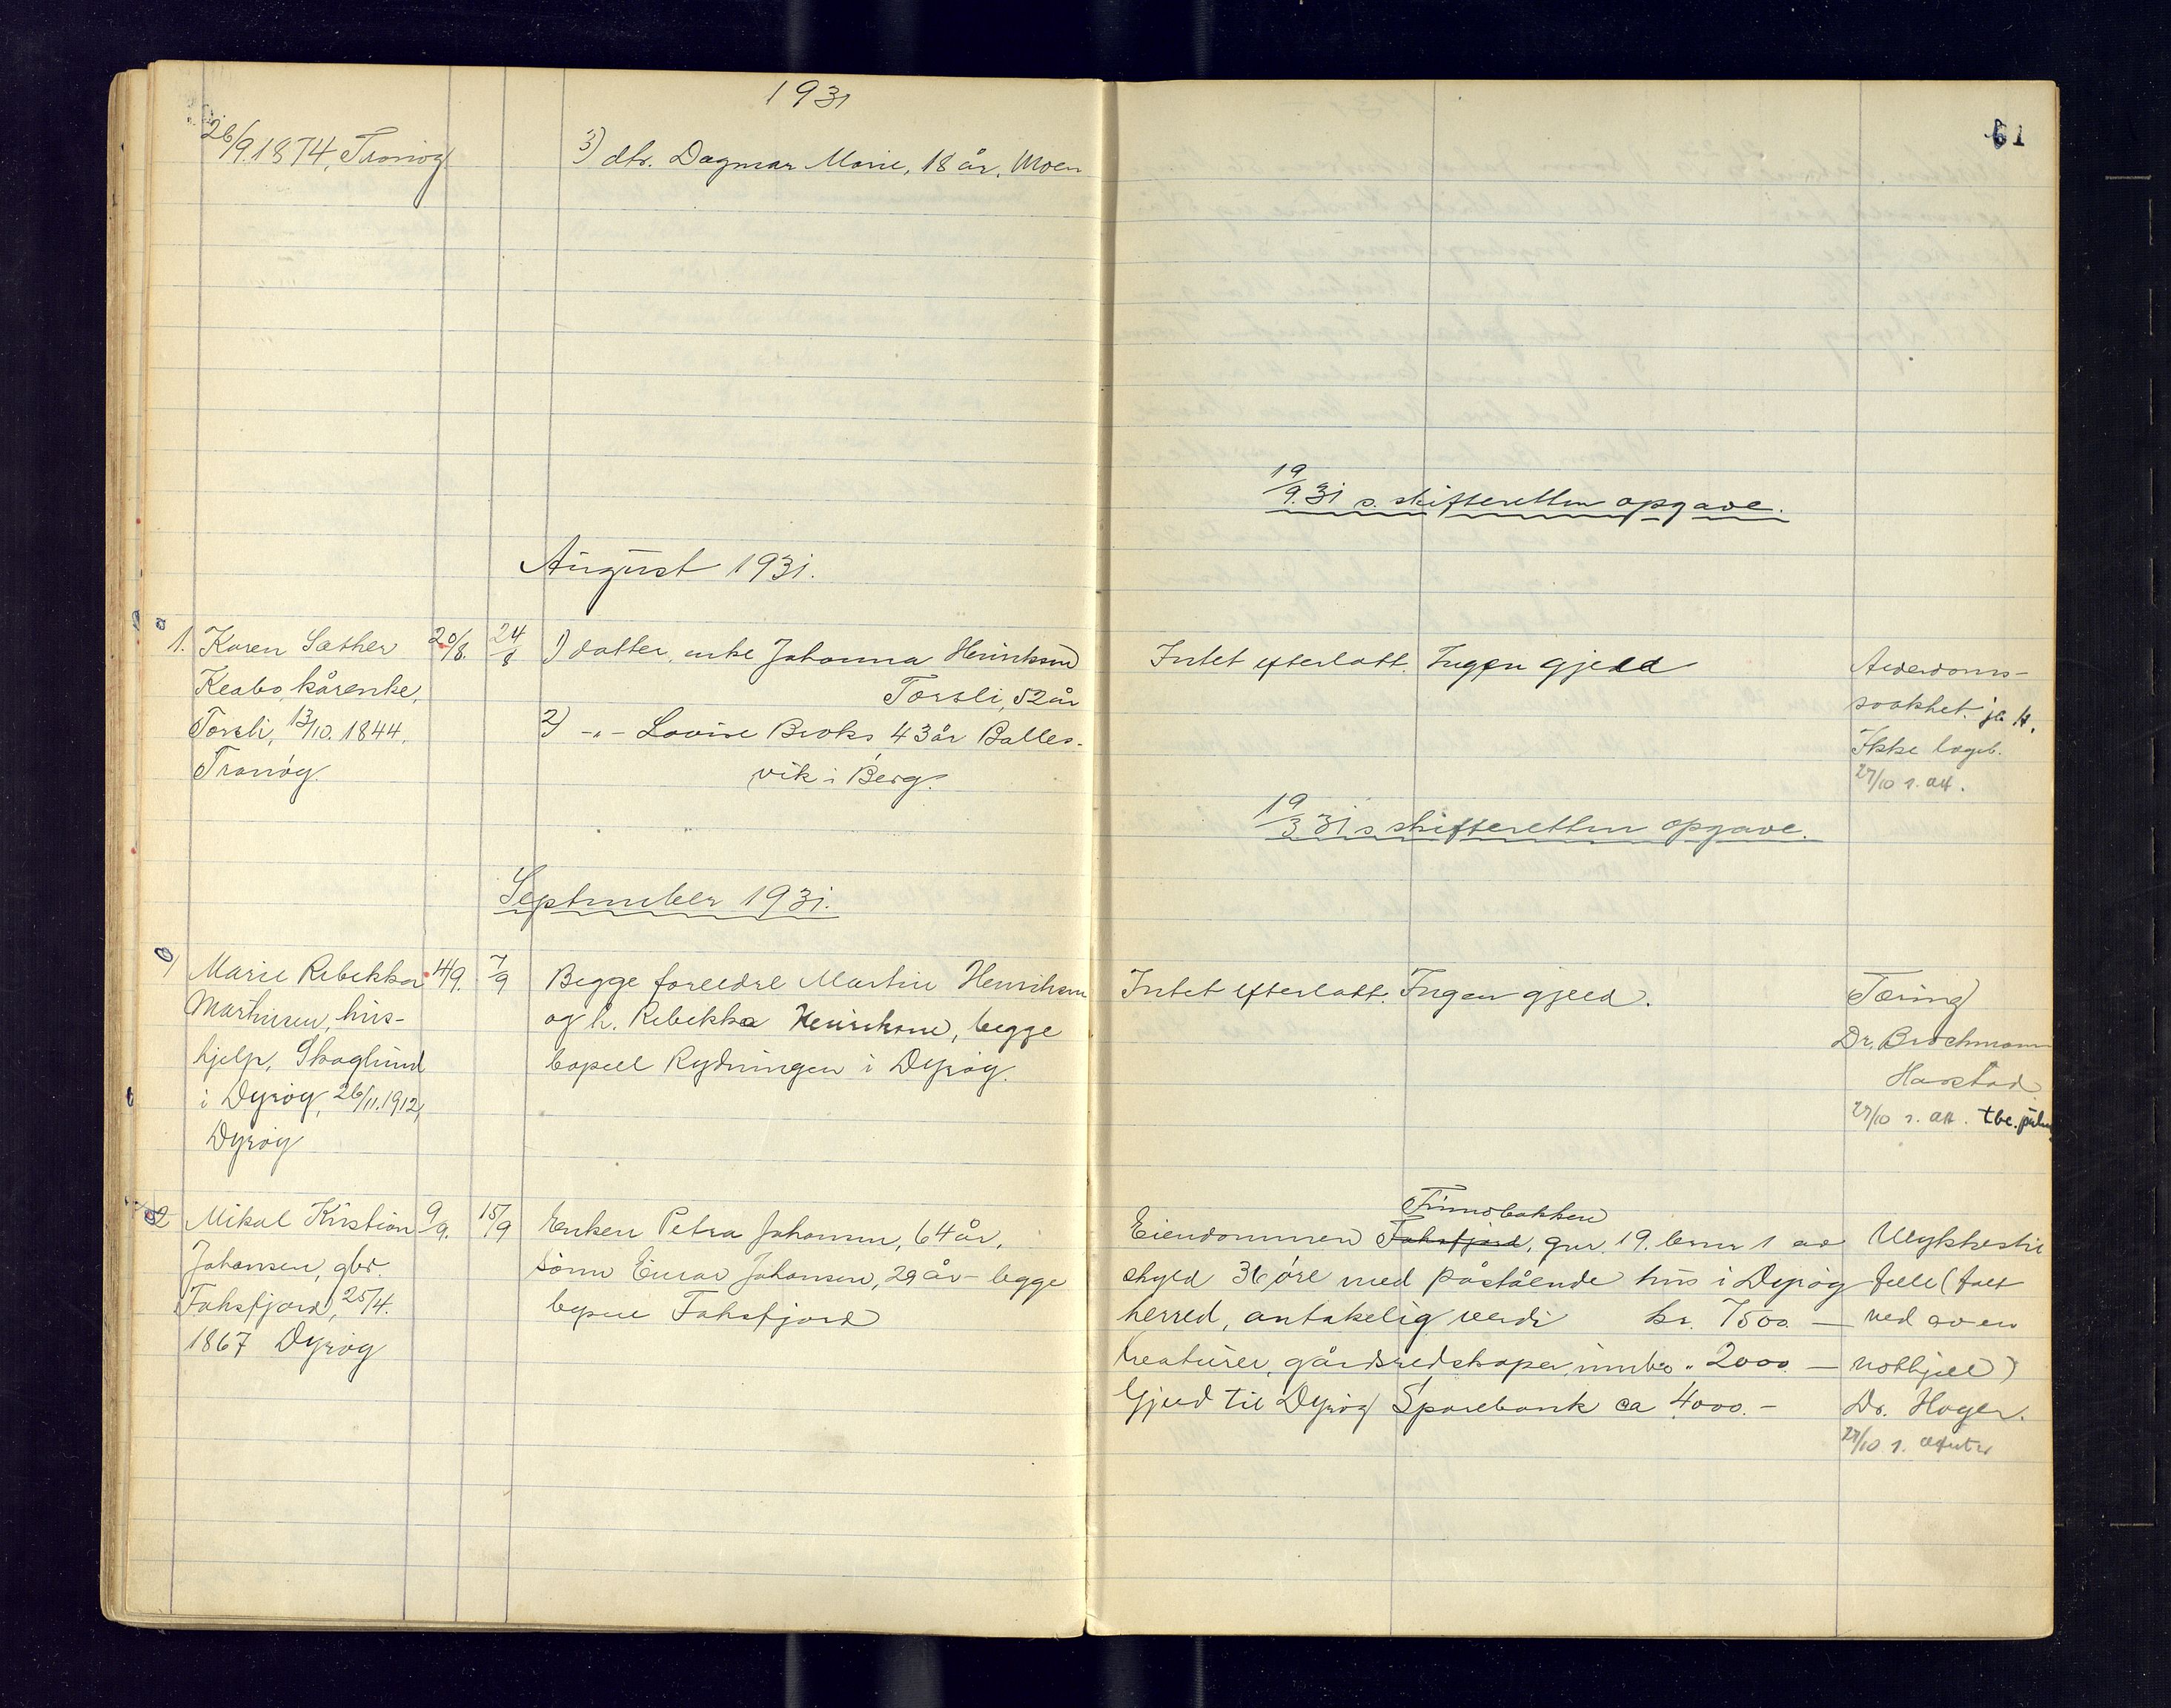 1931
61
26/9.1874, Tranøy
3) dtr. Dagmar Marie, 18 år, Moen
19/9.31 s. skifteretten opgave.
August 1931.
1. Karen Sæther 20/8. 24/8 1) datter, enke Johanna Henriksen Intet efterlatt. Ingen gjeld Alderdoms-
Keabo, kårenke, Torsli, 52 år svakhet. ja H.
Torsli, 13/10. 1844, 2) -"- Lovise Broks, 43 år Balles- Ikke lægeb.
Tranøy. vik i Berg. 27/10 s. att.
19/3 31 s skifteretten opgave.
September 1931.
1 Marie Rebekka 4/9. 7/9 Begge foreldre Martin Henriksen Intet efterlatt. Ingen gjeld. Tæring
Markusen, hus- og h. Rebekka Henriksen, begge Dr. Brochmann
hjelp, Skoglund bopæl Rydningen i Dyrøy. Harstad
i Dyrøy, 26/11.1912, 27/10 s. att. tbc. pulm.
Dyrøy
Finnbakken
2 Mikal Kristian 9/9. 15/9 Enken Petra Johansen, 64 år, Eiendommen Faksfjord, gnr. 19. bnr 1 av Ulykkestil
Johansen, gbr. sønn Einar Johansen, 29 år - begge skyld 36 øre med påstående hus i Dyrøy felle (falt
Faksfjord, 25/4. bopæl Faksfjord herred, antakelig verdi kr. 7500 — ned av en
1867 Dyrøy kreaturer, gårdsredskaper, innbo " 2000 — nothjell)
Gjeld til Dyrøy Sparebank ca 4000.- Dr. Høyer.
27/10 s.